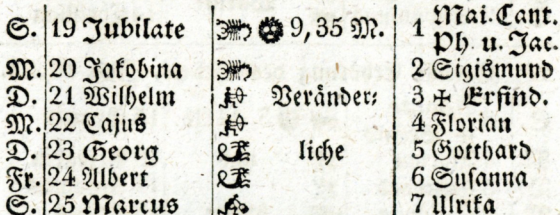 S. 19 Jubilate 9, 35 M. 1 Mai. Cant. Ph. u. Jac.
M. 20 Jakobina 2 Sigismund
D. 21 Wilhelm Veränder: 3 ✠ Erfind.
M. 22 Cajus 4 Florian
D. 23 Georg liche 5 Gotthard
Fr. 24 Albert 6 Susanna
S. 25 Marcus 7 Ulrika